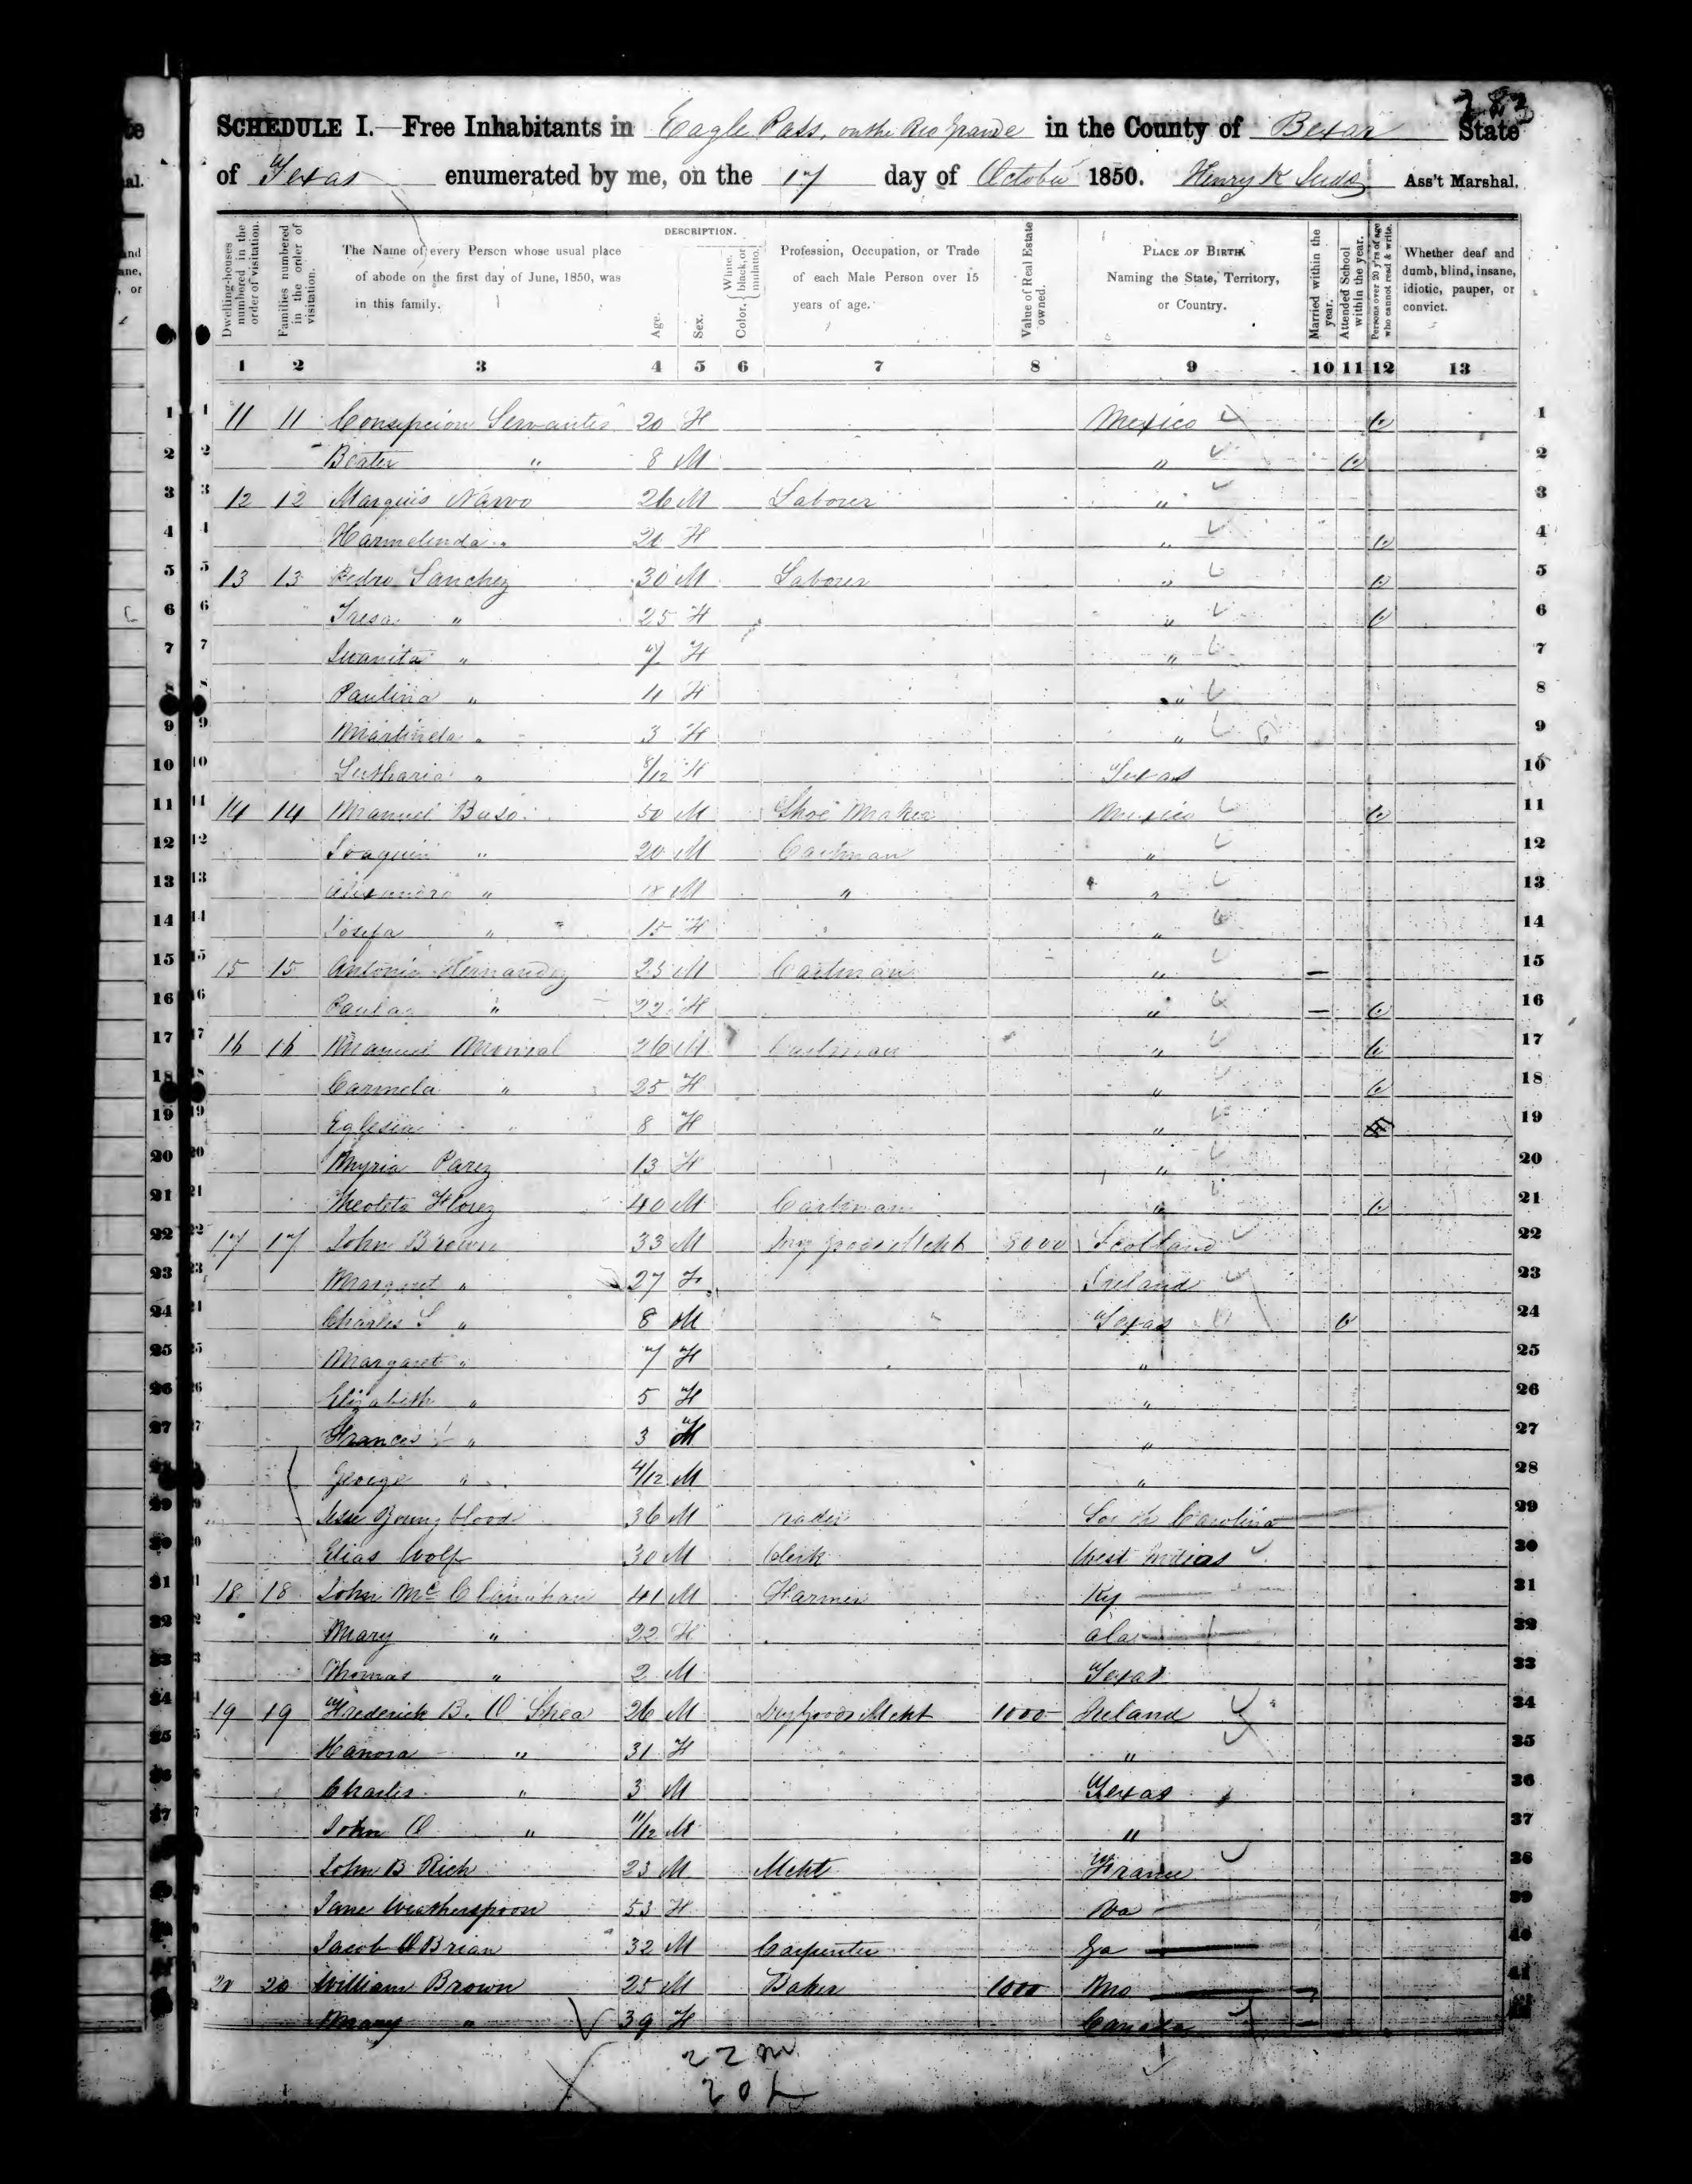 283
SCHEDULE I.—Free Inhabitants in Eagle Pass, on the Rio Grande in the County of Bexar State
of Texas enumerated by me, on the 17 day of October 1850. Henry K Ass't Marshal.
Dwelling-houses numbered in the order of visitation.
Families numbered in the order of visitation.
The Name of every Person whose usual place of abode on the first day of June, 1850, was in this family.
DESCRIPTION.
Age.
Sex.
Color, White, black, or mulatto.
Profession, Occupation, or Trade of each Male Person over 15 years of age.
Value of Real Estate owned.
PLACE OF BIRTH Naming the State, Territory, or Country.
Married within the year.
Attended School within the year.
Persons over 20 y'rs of age who cannot read & write.
Whether deaf and dumb, blind, insane, idiotic, pauper, or convict.
1 2 3 4 5 6 7 8 9 10 11 12 13
1 11 11 Consepcion Servantes 20 F Mexico 1
2 " 8 M " 2
3 12 12 Marquis Narvo 26 M Laborer " 3
4 Harmelinda " 21 F " 4
5 13 13 Pedro Sanchez 30 M Laborer " 5
6 Tresa " 25 F " 6
7 Juanita " 7 F " 7
8 Paulina " 4 F " 8
9 " 3 F " 9
10 " 8/12 F Texas 10
11 14 14 Manuel Baso 50 M Shoe Maker Mexico 11
12 Joaquin " 20 M Cartman " 12
13 Alixandro " 18 M " " 13
14 Josefa " 15 F " 14
15 15 15 Antonio Hernandez 25 M Cartman " 15
16 Paula " 22 F " 16
17 16 16 Manuel 26 M Cartman " 17
18 Carmela " 25 F " 18
19 Eglesia " 8 F " 19
20 Myria Parez 13 F " 20
21 Florez 40 M Cartman " 21
22 17 17 John Brown 33 M Dry Goods Mcht 8000 Scotland 22
23 Margaret " 27 F Ireland 23
24 Charles S " 8 M Texas 24
25 Margaret " 7 F " 25
26 Elizabeth " 5 F " 26
27 Frances " 3 F " 27
28 George " 4/12 M " 28
29 Jesse Youngblood 36 M Trader South Carolina 29
30 Elias Wolf 30 M Clerk West Indias 30
31 18 18 John McClanahan 41 M Farmer Ky 31
32 Mary " 22 F Ala 32
33 Thomas " 2 M Texas 33
34 19 19 Frederick B. O Shea 26 M Dry Goods Mcht 1000 Ireland 34
35 Hanora " 31 F " 35
36 Charles " 3 M Texas 36
37 John O " 11/12 M " 37
38 John B Rich 23 M Mcht France 38
39 Jane Weatherspoon 53 F Va 39
40 Jacob O Brian 32 M Carpenter Ga 40
41 20 20 William Brown 25 M Baker 1000 Mo 41
42 Mary " 39 F Canada 42
22 m
20 f